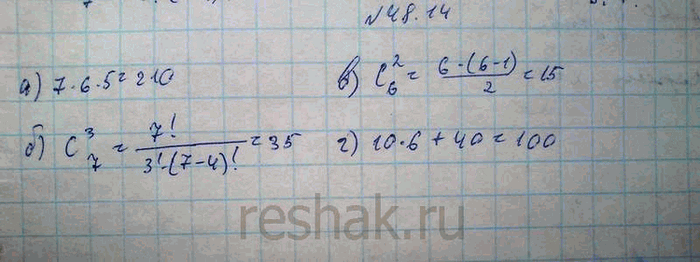 №48.14
а) 7·6·5=210
в) C₆² = 6·(6-1)/2 = 15
б) C₇³ = 7!/3!·(7-4)! = 35
г) 10·6+40=100
reshak.ru